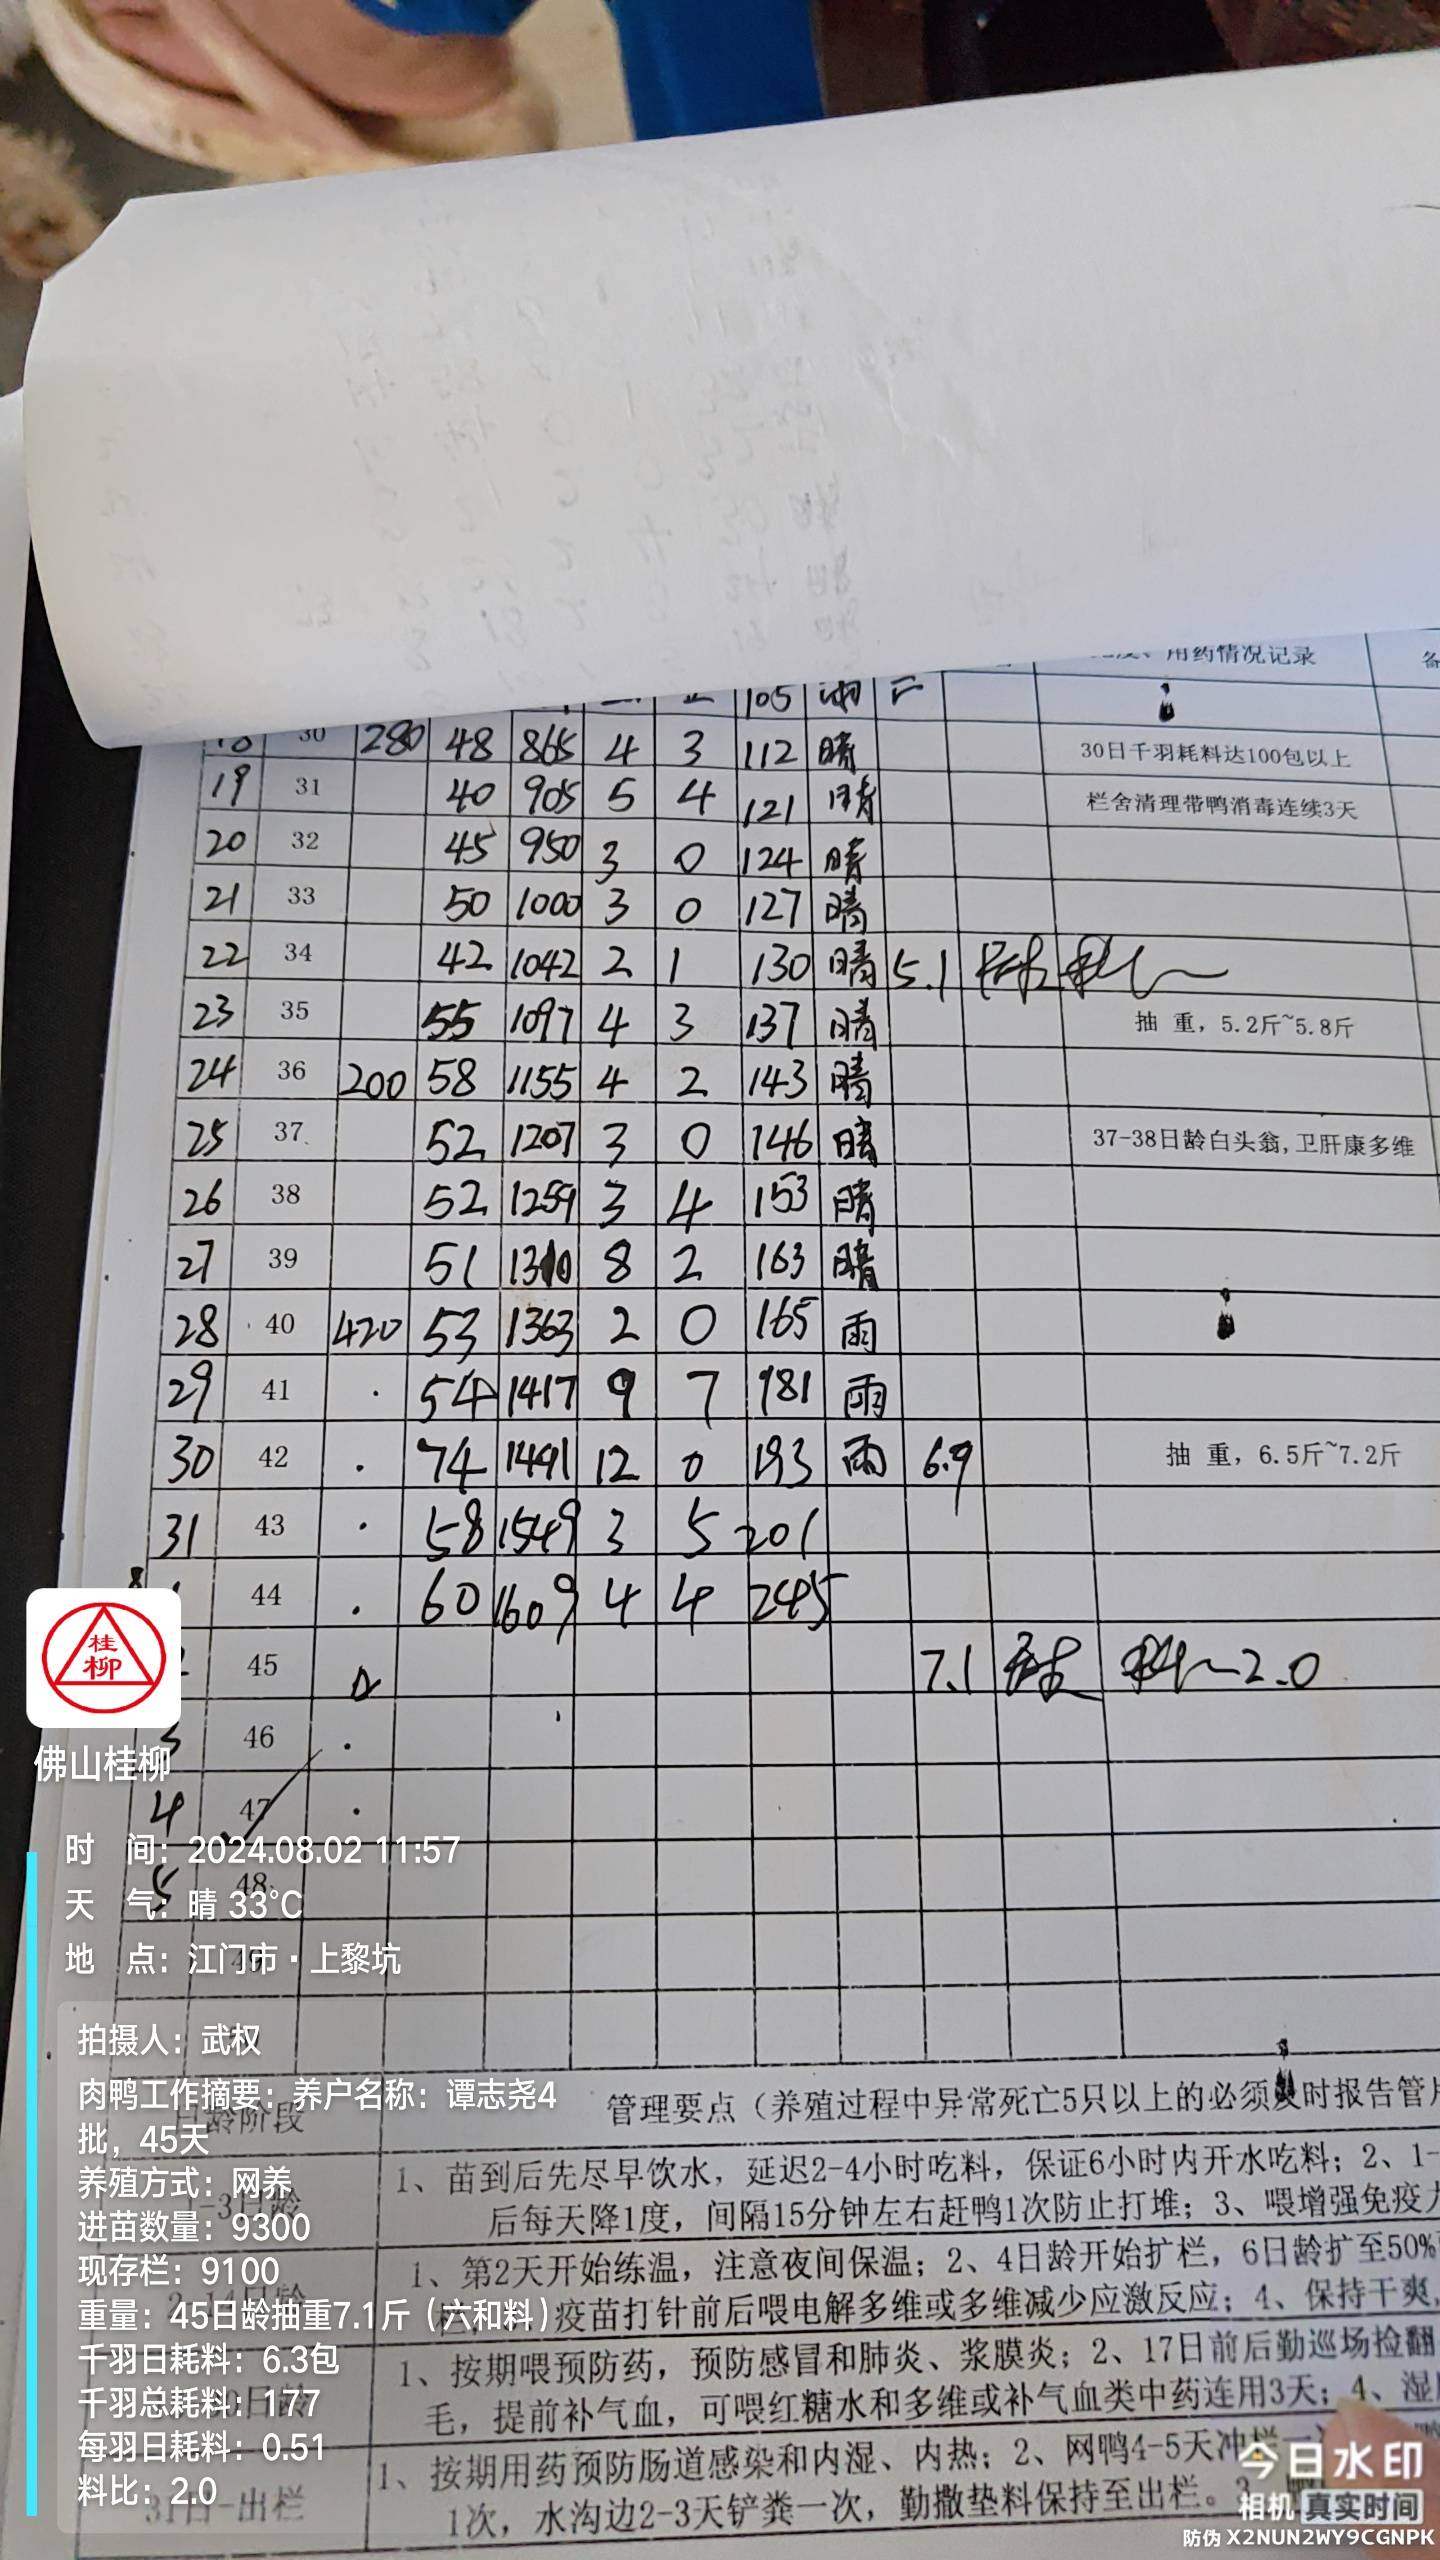 用药情况记录
105
18 30 280 48 865 4 3 112 晴 30日千羽耗料达100包以上
19 31 40 905 5 4 121 晴 栏舍清理带鸭消毒连续3天
20 32 45 950 3 0 124 晴
21 33 50 1000 3 0 127 晴
22 34 42 1042 2 1 130 晴 5.1
23 35 55 1097 4 3 137 晴 抽 重，5.2斤~5.8斤
24 36 200 58 1155 4 2 143 晴
25 37 52 1207 3 0 146 晴 37-38日龄白头翁,卫肝康多维
26 38 52 1259 3 4 153 晴
27 39 51 1310 8 2 163 晴
28 40 420 53 1363 2 0 165 雨
29 41 54 1417 9 7 181 雨
30 42 74 1491 12 0 193 雨 6.9 抽 重，6.5斤~7.2斤
31 43 58 1549 3 5 201
44 60 1609 4 4
45 7.1 料 2.0
3 46
4 47
5 48
桂柳
佛山桂柳
时 间：2024.08.02 11:57
天 气：晴 33°C
地 点：江门市·上黎坑
拍摄人：武权
肉鸭工作摘要：养户名称：谭志尧4
批，45天
养殖方式：网养
进苗数量：9300
现存栏：9100
重量：45日龄抽重7.1斤（六和料）
千羽日耗料：6.3包
千羽总耗料：177
每羽日耗料：0.51
料比：2.0
日龄阶段 管理要点（养殖过程中异常死亡5只以上的必须及时报告管
1-3日龄 1、苗到后先尽早饮水，延迟2-4小时吃料，保证6小时内开水吃料；2、1-
后每天降1度，间隔15分钟左右赶鸭1次防止打堆；3、喂增强免疫力
1、第2天开始练温，注意夜间保温；2、4日龄开始扩栏，6日龄扩至50%
疫苗打针前后喂电解多维或多维减少应激反应；4、保持干爽，
1、按期喂预防药，预防感冒和肺炎、浆膜炎；2、17日前后勤巡场捡翻
毛，提前补气血，可喂红糖水和多维或补气血类中药连用3天；4、湿
31日-出栏 1、按期用药预防肠道感染和内湿、内热；2、网鸭4-5天冲栏一
1次，水沟边2-3天铲粪一次，勤撒垫料保持至出栏。3
今日水印
相机 真实时间
防伪 X2NUN2WY9CGNPK